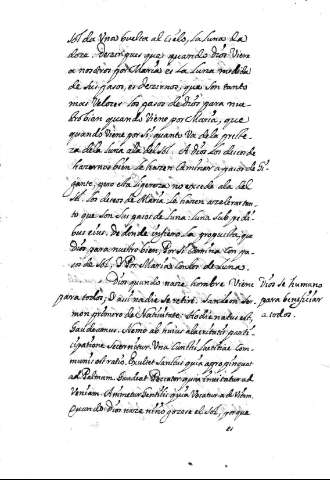 sol da una buelta al cielo, la luna la
doze. Dezir pues que quando Dios viene
a nosotros por Maria es la luna medida
de sus pasos, es dezirnos, que son tanto
mas velozes los pasos de Dios para nues
tro bien quando viene por Maria, que
quando viene por si, quanto va de la preste
za de la luna a la del sol. A Dios los deseos de
hazernos bien le hazen caminar a pasos de Gi
gante, pero esta ligereza no excede a la del
sol. los deseos de Maria le hazen acelerar tan
to que son sus pasos de luna: luna sub pedi
bus eius. De donde infiero la prosequita que
Dios para nuestro bien, Por si camina con pa
sos de sol, y Por Maria con los de luna.
Dios quando naze hombre viene
para todos, y asi nadie se retire. S. Leon Ser
mon primero de Natiuitate. Hodie natus est,
Gaudeamus. Nemo ab huius alacritatis parti
cipatione secernitur. Una cunctis laetitiae com
munis est ratio. Exultet sanctus quia apropinquat
ad Palmam. Gaudeat Peccator quia inuitatur ad
Veniam. Animetur Gentilis quia vocatur ad Vitam.
Quando Dios naze niño gozese el sol, porque
el
Dios se humano
para beneficiar
a todos.